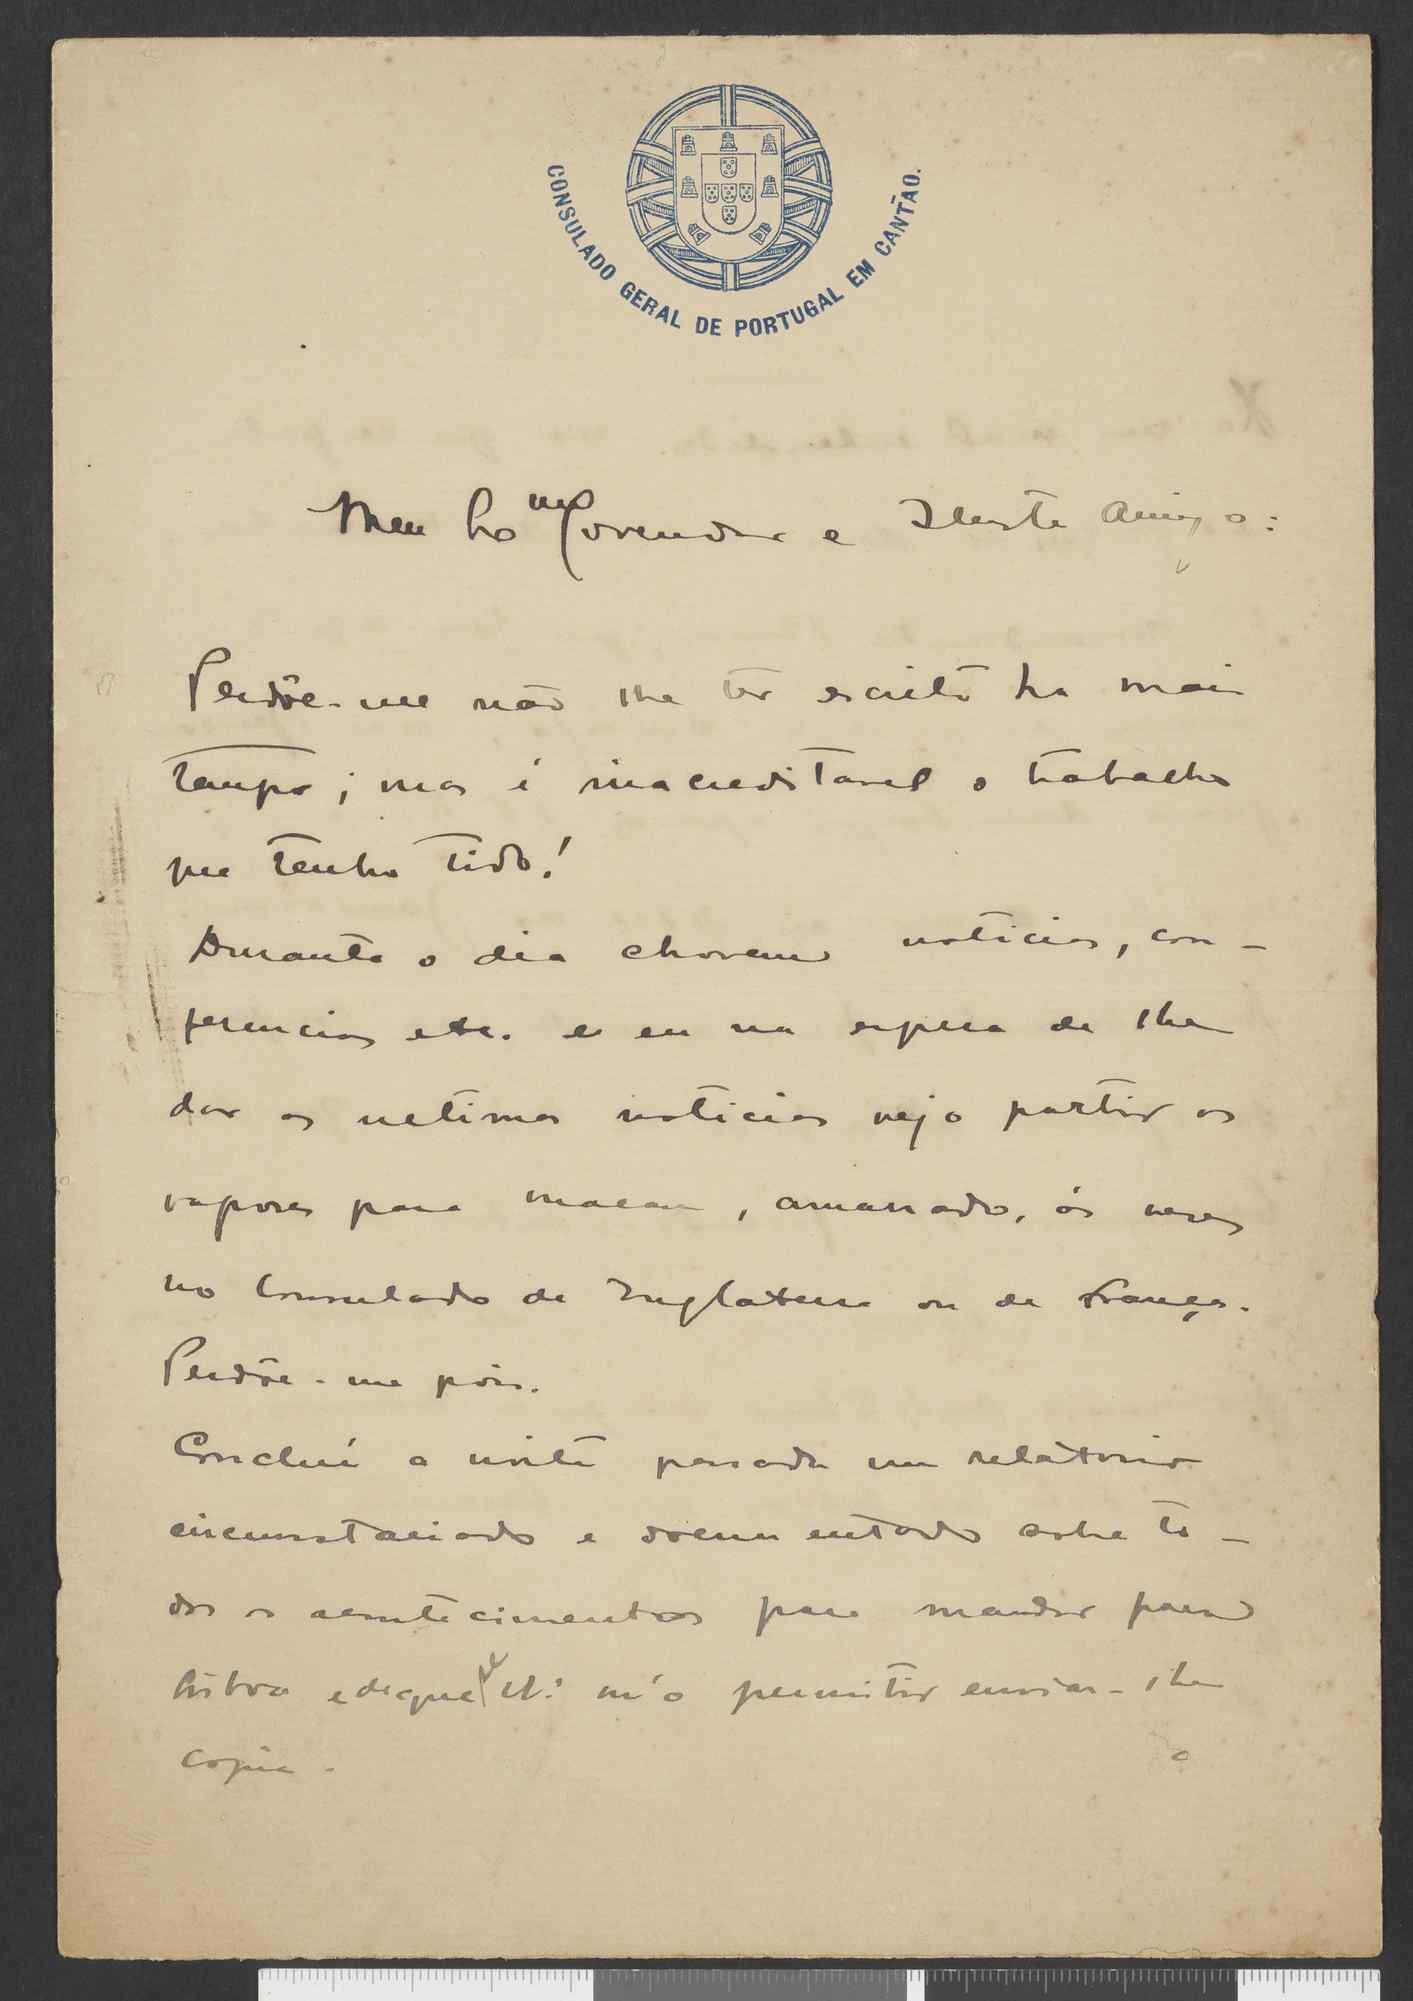 CONSULADO GERAL DE PORTUGAL EM CANTÃO.
Meu e Illustre Amigo:
Perdôe-me não lhe ter escrito ha mais
tempo; mas é inacreditavel o trabalho
que tenho tido!
Durante o dia chovem noticias, con-
ferencias etc. e eu na espera de lhe
dar as ultimas noticias vejo partir os
vapores para Macau, amarrado, ás vezes
no Consulado de Inglaterra ou de França.
Perdôe-me pois.
Concluí a noite passada um relàtorio
circunstaciado e documentado sobre to-
dos os acontecimentos para mandar para
Lisboa e m'o permitir enviar-lhe
copia.